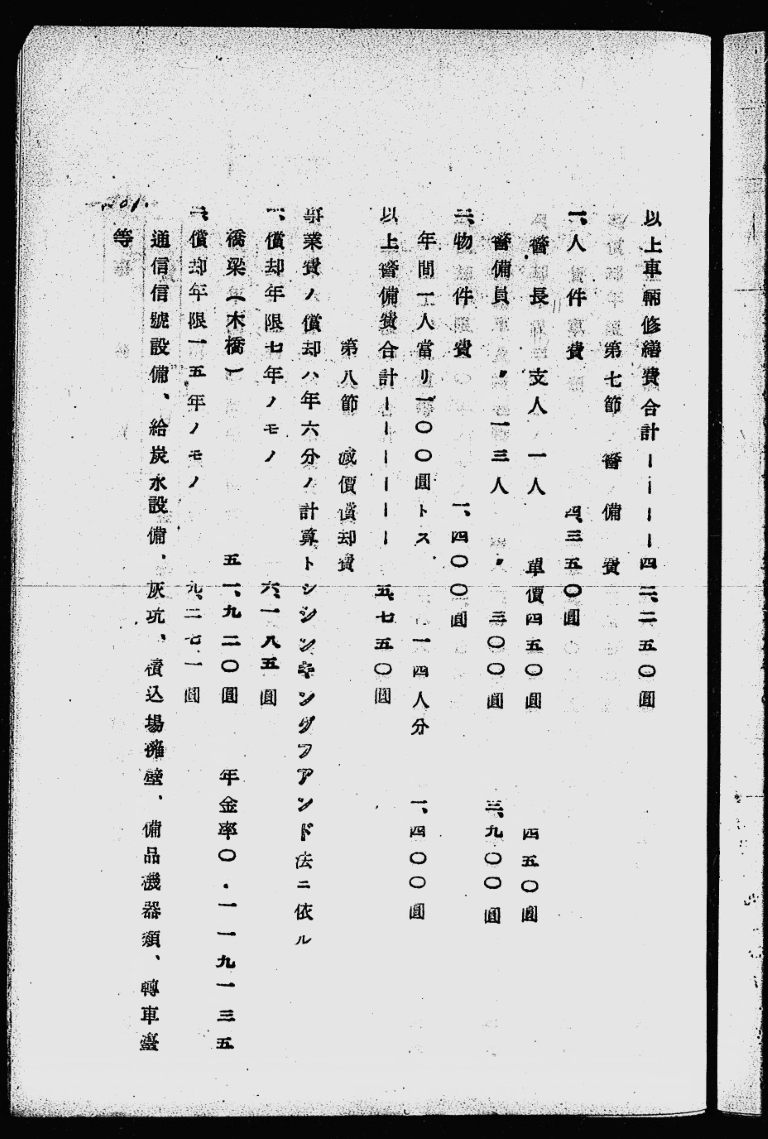 以上車輛修繕費合計ーーーー四二、二五〇圓
第七節　警備費
一、人件費　四、三五〇圓
警長　支人　一人　單價四五〇圓　四五〇圓
警備員　〃　一三人　〃　三〇〇圓　三、九〇〇圓
二、物件費　一、四〇〇圓
年間一人當リ一〇〇圓トス　一四人分　一、四〇〇圓
以上警備費合計ーーーーーー五、七五〇圓
第八節　減價償却費
事業費ノ償却ハ年六分ノ計算トシシンキングフアンド法ニ依ル
一、償却年限七年ノモノ　六、一八五圓
橋梁（木橋）　五一、九二〇圓　年金率〇・一一九一三五
二、償却年限一五年ノモノ　九、二七一圓
通信信號設備、給炭水設備、灰坑、積込場擁壁、備品機器類、轉車臺
等
201.